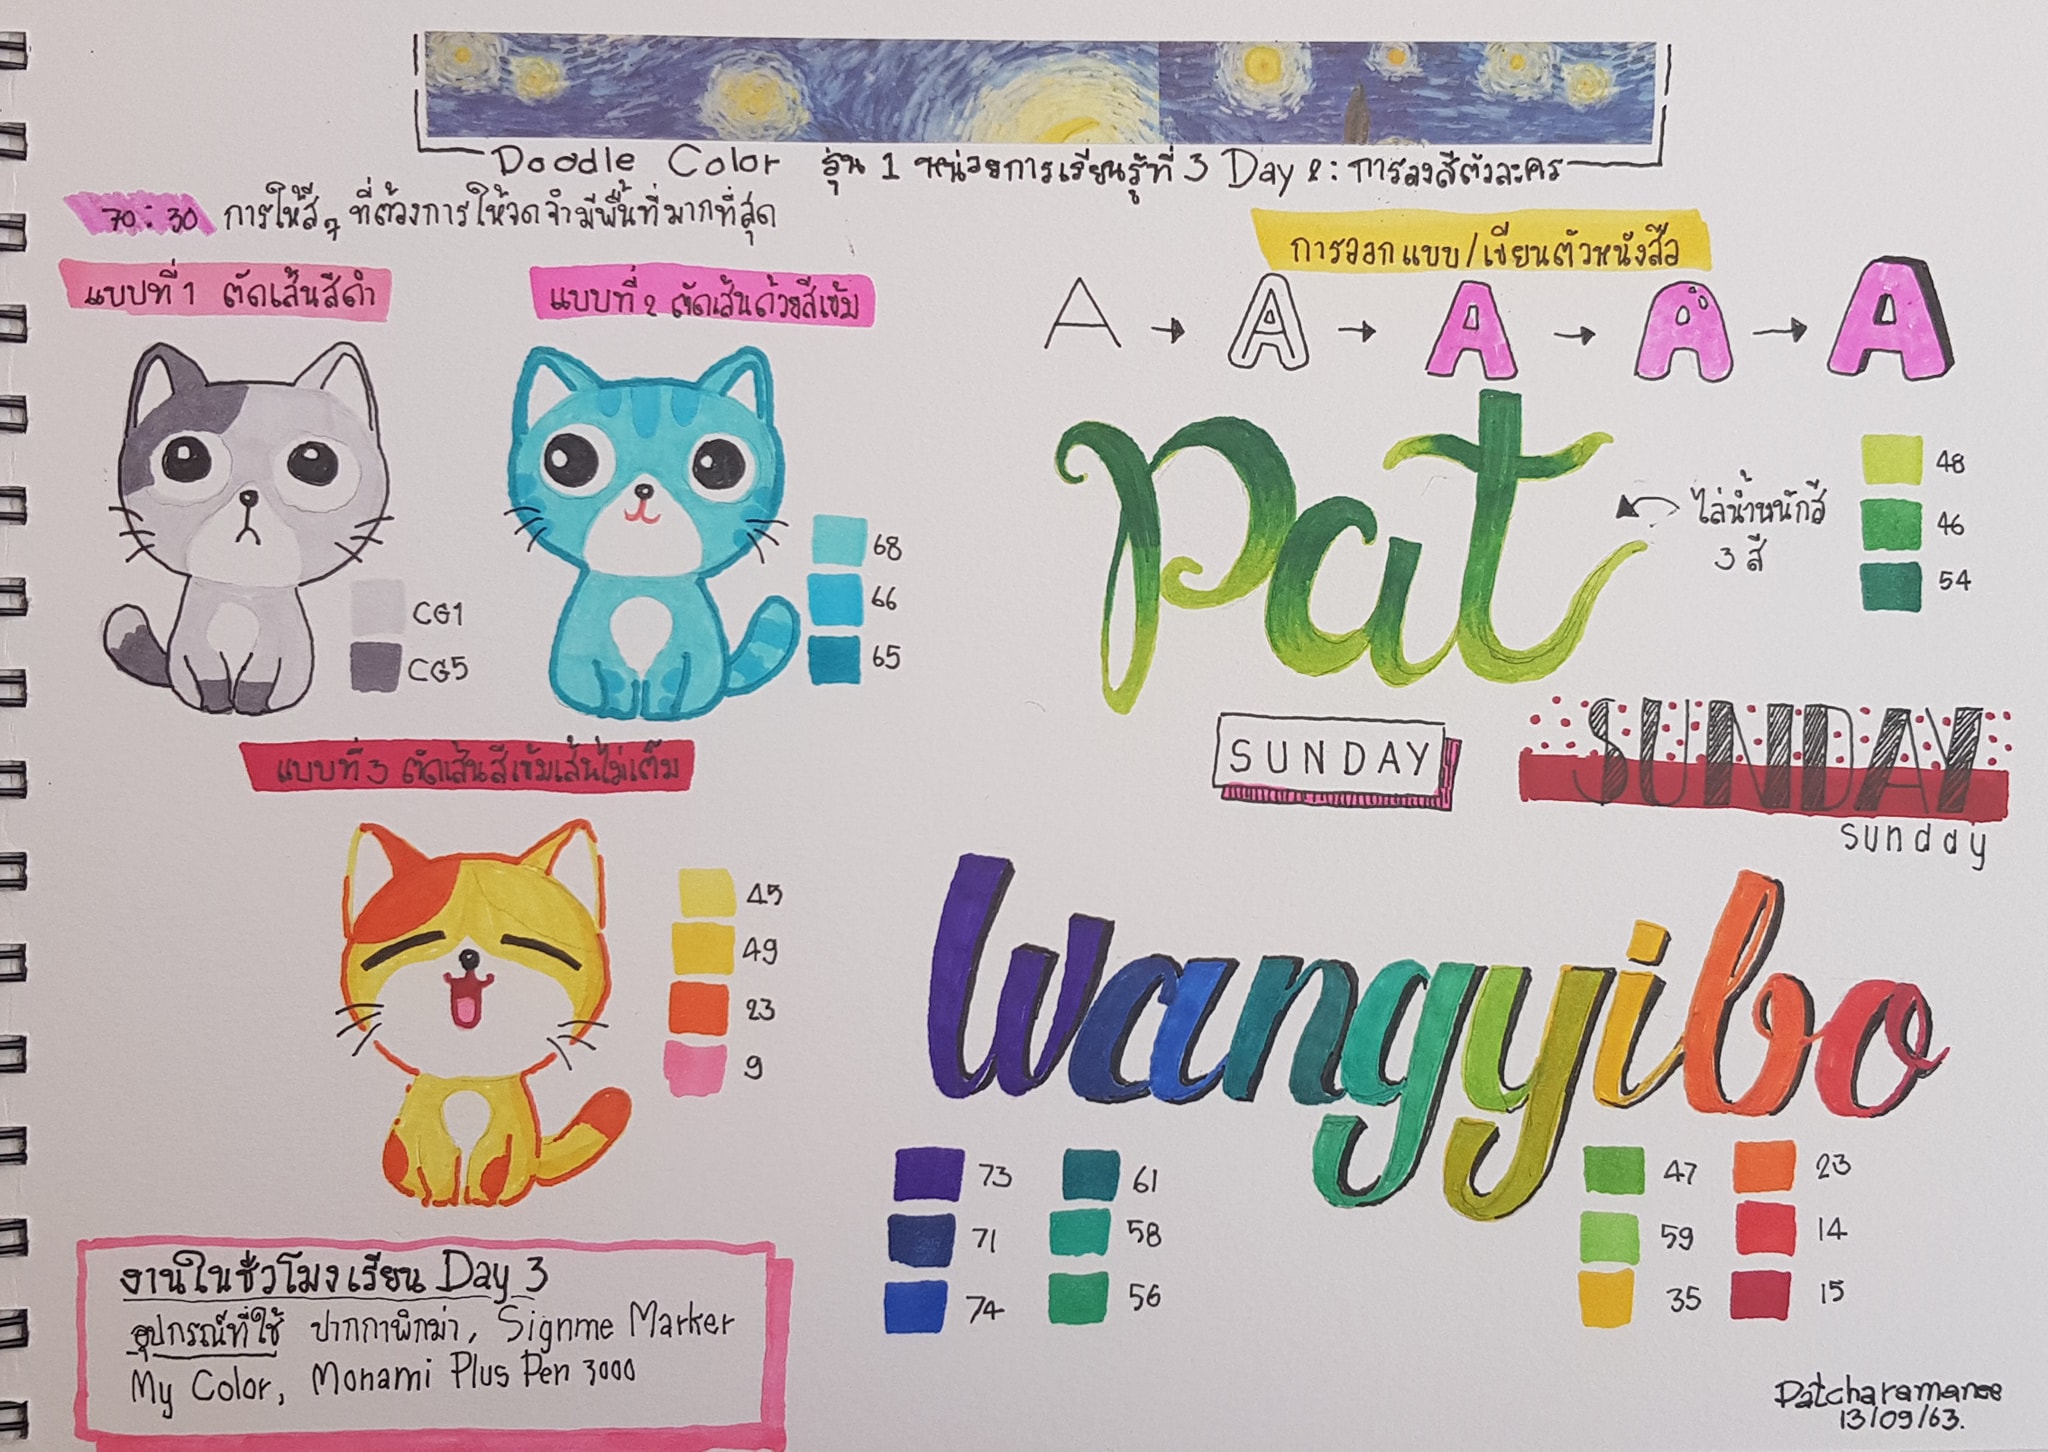 Doodle Color รุ่น 1 หน่วยการเรียนรู้ที่ 3 Day 2 : การลงสีตัวละคร
70 : 30 การให้สีๆ ที่ต้องการให้จดจำมีพื้นที่มากที่สุด
แบบที่ 1 ตัดเส้นสีดำ
แบบที่ 2 ตัดเส้นด้วยสีเข้ม
CG1
CG5
68
66
65
แบบที่ 3 ตัดเส้นสีเข้มเส้นไม่เต็ม
45
49
23
9
งานในชั่วโมงเรียน Day 3
อุปกรณ์ที่ใช้ ปากกาพิกม่า, Signme Marker
My Color, Monami Plus Pen 3000
การออกแบบ/เขียนตัวหนังสือ
A → A → A → A → A
Pat
ไล่น้ำหนักสี
3 สี
48
46
54
SUNDAY
SUNDAY
sunday
Wangyibo
73
71
74
61
58
56
47
59
35
23
14
15
Patcharamanee
13/09/63.